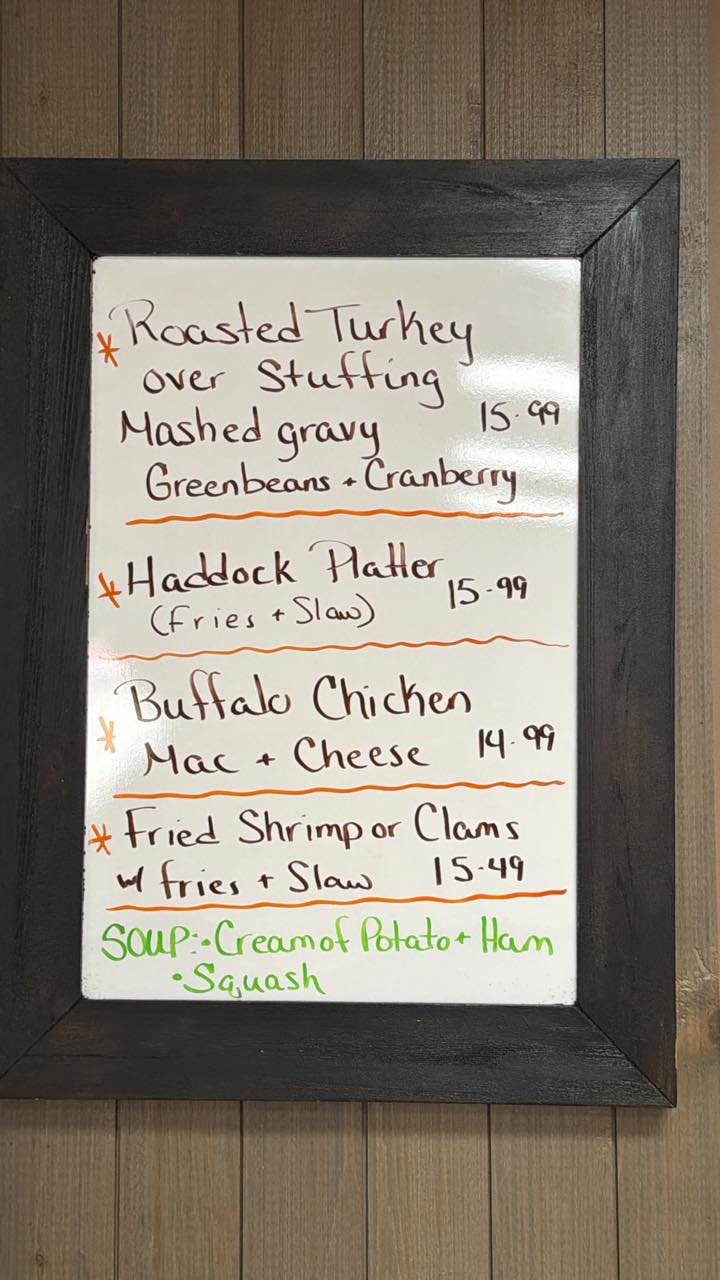 * Roasted Turkey
over Stuffing
Mashed gravy 15.99
Greenbeans + Cranberry
* Haddock Platter 15.99
(Fries + Slaw)
* Buffalo Chicken
Mac + Cheese 14.99
* Fried Shrimp or Clams
w/ fries + Slaw 15.49
SOUP: • Cream of Potato + Ham
• Squash